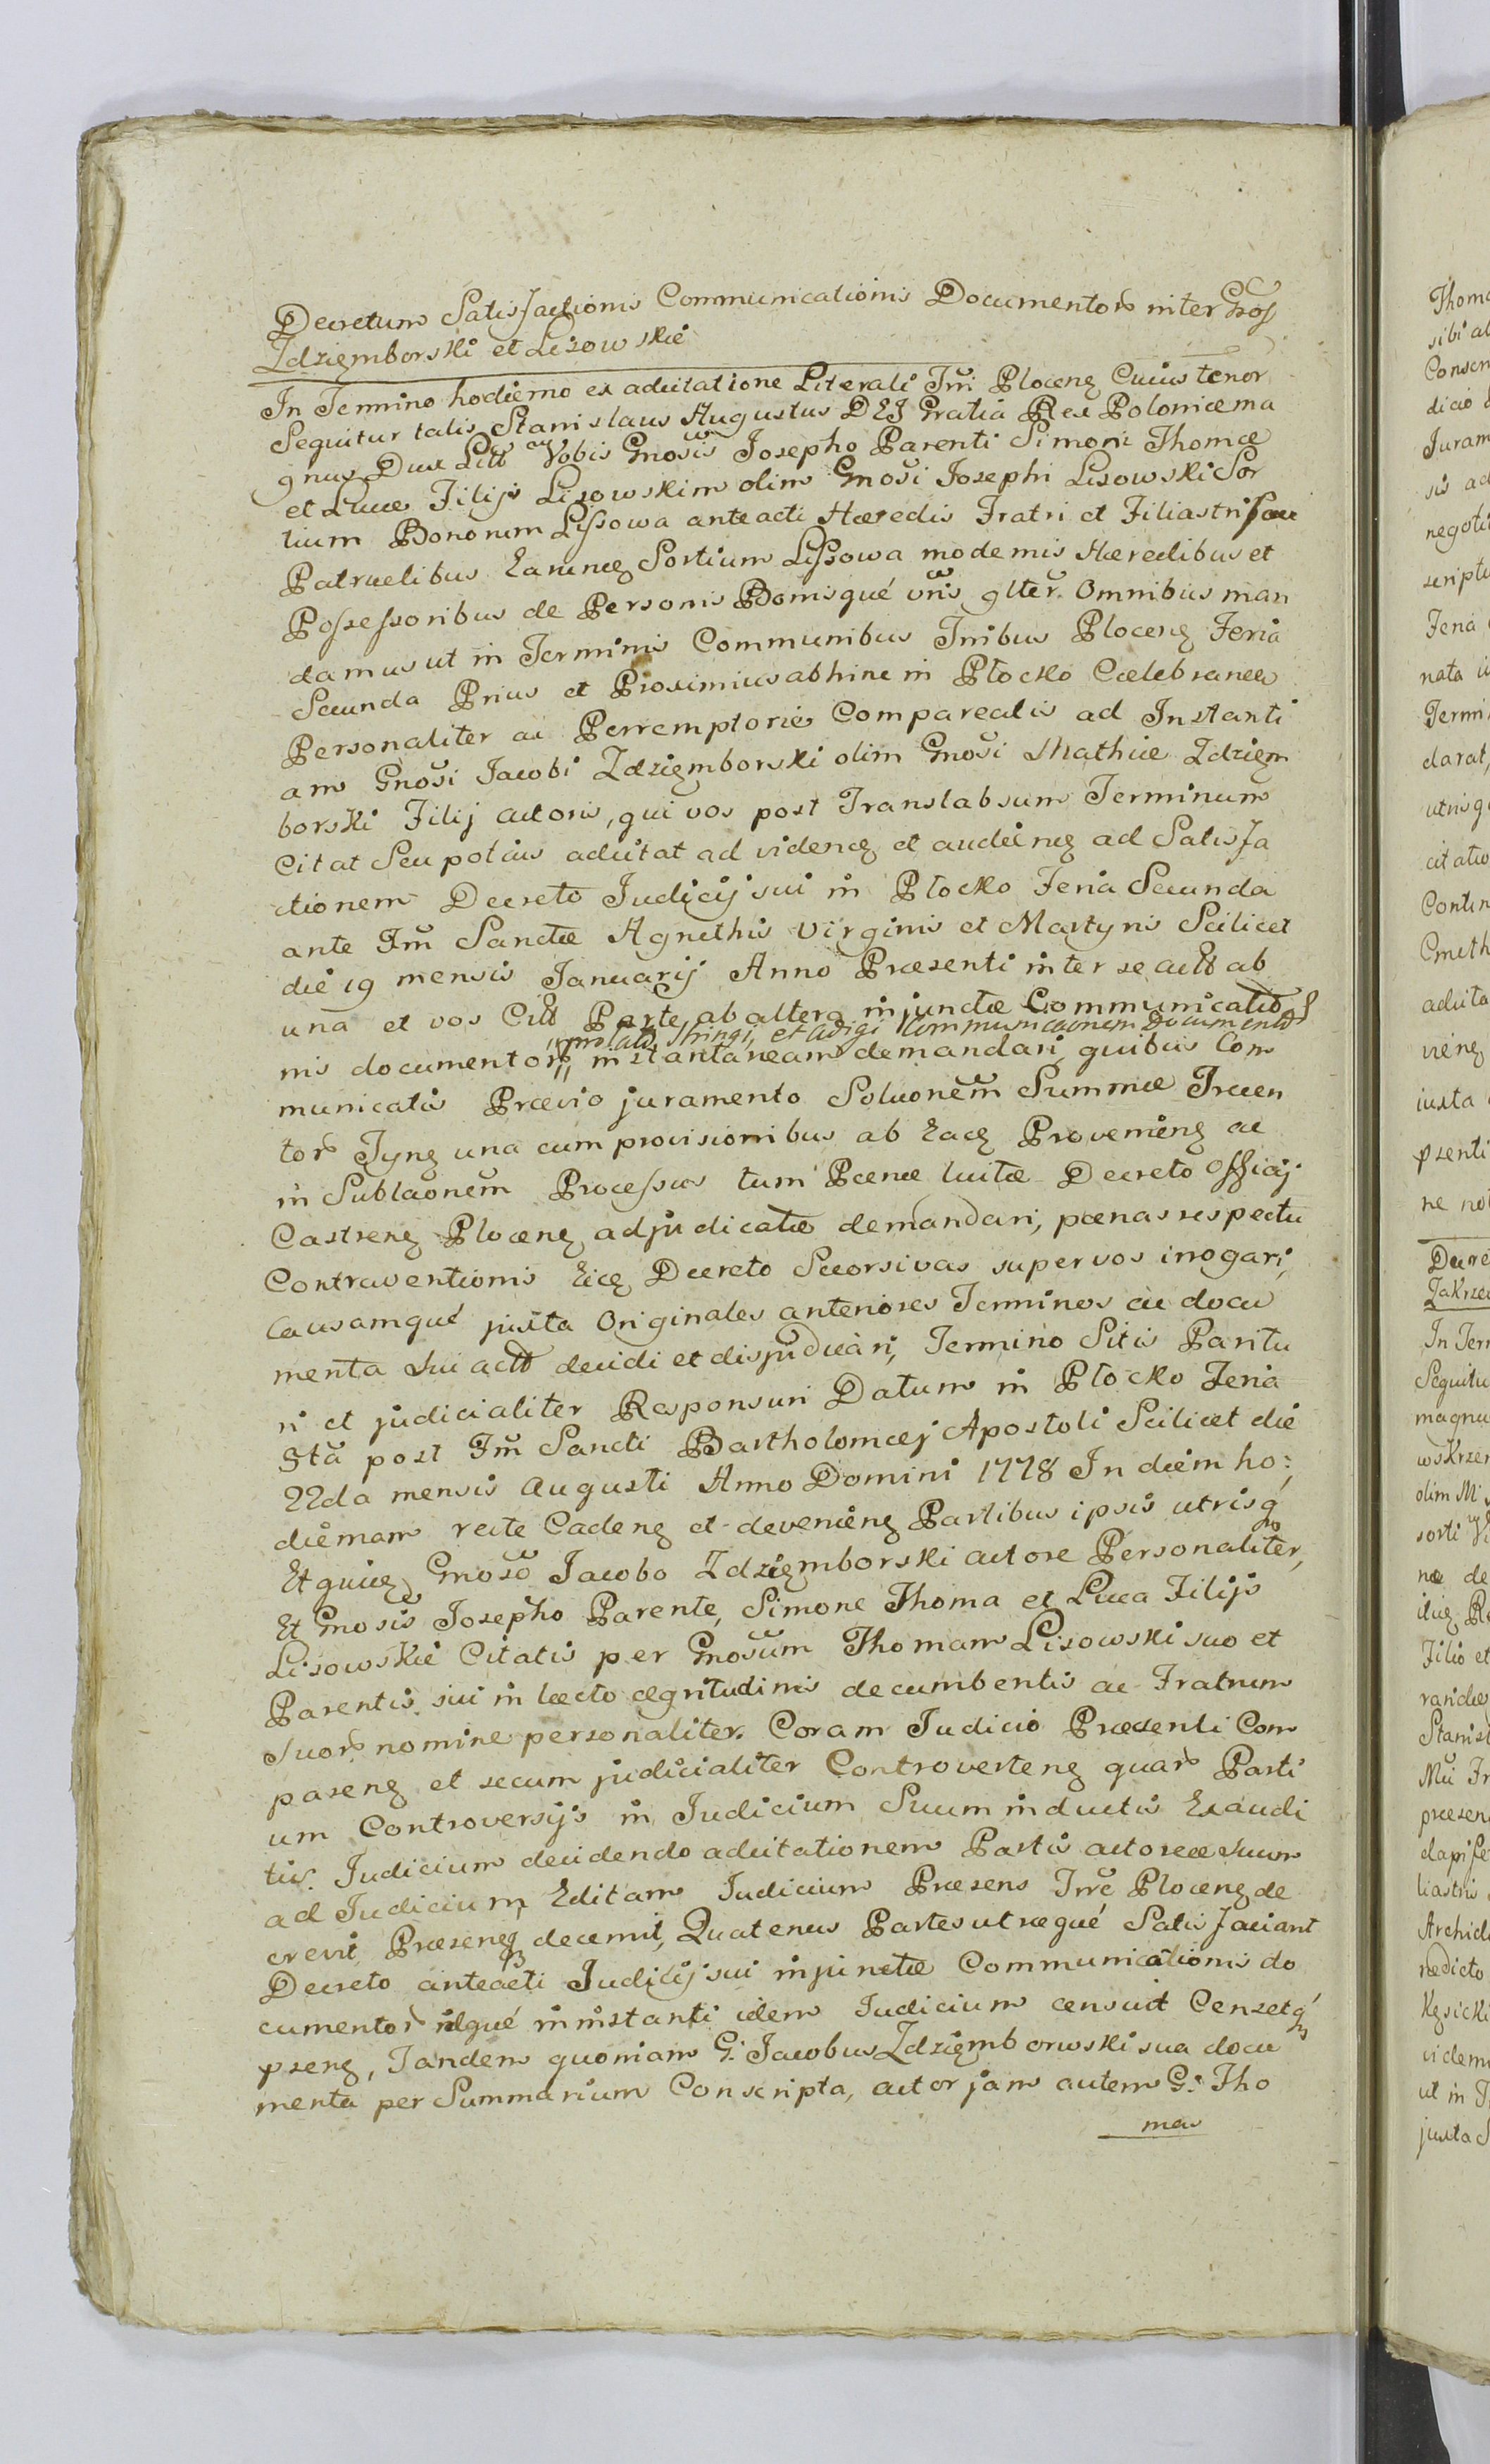 Decretum Satisfactionis Communicationis Documentor inter Gños
Zdzięmborski et Lisowskie
In Termino hodierno ex adcitatione Literali Trri Ploceng Cuius tenor
Sequitur talis Stanislaus Augustus DEI Gratia Rex Poloniæ ma
gnus Dux Litt Vobis Gnosis Josepho Parenti Simoni Thomæ
et Lucæ Filijs Lisowskim olim Gnosi Josephi Lisowski Sor
tium Bonorum Lissowa anteacti Hæredis Fratri et Filiastris seu
Patruelibus Earunq Sortium Lissowa modernis Hæredibus et
Possessoribus de Personis Bonisqué vris glter. Omnibus man
damus ut in Terminis Communibus Trribus Ploceng Feria
Secunda Prius et Proximius abhinc in Płocko Cælebrança
Personaliter ac Perremptorie Compareatis ad Instanti
am Gnosi Jacobi Zdzięmborski olim Gnosi Mathiæ Zdziem
borski Filij actoris, qui vos post Translabsum Terminum
Citat Seu potius adcitat ad videnq et audienq ad Satisfa
ctionem Decreto Judicij sui in Płocko Feria Secunda
ante Fm Sanctæ Agnethis Virginis et Martyris Scilicet
die 19 mensis Januarij Anno Præsenti inter se actt ab
una et vos Citt Parte ab altera injunctæ Communicatio
prolato, stringi, et adigi Communicaonem Documento
nis documentor instantaneam demandari, quibus Com
municatis Prævio juramento Soluonem Summæ Trecen
tor Tyng una cum provisionibus ab Eaq Proveniẽng ac
in Sublaonem Processus tum Pœnæ luitæ Decreto Officij
Castreng Ploceng adjudicatæ demandari, pœnas respectu
Contraventionis Eiq Decreto Seorsivas super vos irrogari,
Causamqué juxta Originales anteriores Terminos ac docu
menta sui actt decidi et disjudicari, Termino Sitis Paritu
ri et judicialiter Responsuri Datum in Płocko Feria
5ta post Fm Sancti Bartholomæj Apostoli Scilicet die
22da mensis Augusti Anno Domini 1778 In diem ho:
diernam recte Cadeng et deveniẽng Partibus ipsis utrisq
Et quiq Gnoso Jacobo Zdziemborski actore Personaliter,
Et Gnosis Josepho Parente, Simone Thoma et Luca Filijs
Lisowskie Citatis per Gnosum Thomam Lisowski suo et
Parentis sui in lecto ægritudinis decumbentis ac Fratrum
Suor nomine personaliter. Coram Judicio Præsenti Com
pareng et secum judicialiter Controverteng quar Parti
um Controversijs in Judicium Suum inductis Exaudi
tis. Judicium decidendo adcitationem Partis actoreæ Suum
ad Judicium Editam Judicium Præsens Trre Ploceng de
crevit Præsenq decernit, Quatenus Partes utræqué Satisfaciant
Decreto anteacti Judicij sui injunctæ Communicationis do
cumentor idqué in instanti idem Judicium censuit Censetq
pseng, Tandem quoniam G. Jacobus Zdziemborwski sua docu
menta per Summarium Conscripta, actor jam autem G. Tho
mas